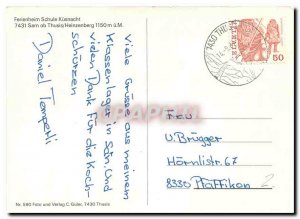 Ferienheim Schule Küsnacht
7431 Sarn ob Thusis/Heinzenberg 1150 m ü.M.
Viele Grüsse aus meinem
Klassenlager in Sdn. Und
vielen Dank für die Koch-
schürzen
Daniel
Frau
U. Brügger
Hörnlistr. 67
8330 Pfäffikon
2
HELVETIA
50
7430 THUSIS
Nr. 560 Foto und Verlag C. Guler, 7430 Thusis